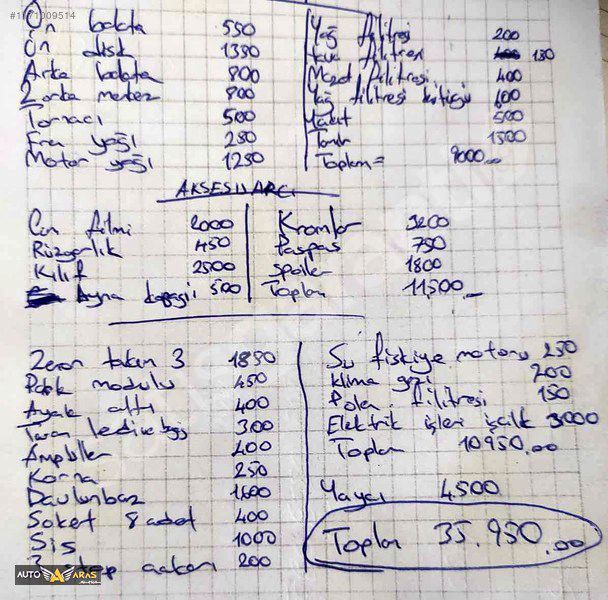 #1171009514
Ön balata 550
Ön disk 1350
Arka balata 800
2 orta merkez 800
Tornacı 500
Fren yağı 250
Motor yağı 1250
Yağ filitresi 200
Hava filitresi 150
Mazot filitresi 400
Yağ filitresi kütüğü 600
Yakıt 500
Tamir 1500
Toplam = 9000,00
AKSESUARCI
Cam filmi 2000
Rüzgarlık 450
Kılıf 2500
Ayna kapağı 500
Kromlar 3200
Paspas 750
Spoiler 1800
Toplam 11,500,-
Zenon takım 3 1850
Park modulu 450
Ayak altı 400
Tavan ledi ve bgj 300
Ampüller 400
Korna 250
Davlunbaz 1600
Soket 8 adet 400
Sis 1000
200
Su fiskiye motoru 250
Klima gazı 200
Polen filitresi 150
Elektrik işleri işcilik 3000
Toplam 10950,00
Yaycı 4500
Toplam 35.950,00
AUTO ARAS